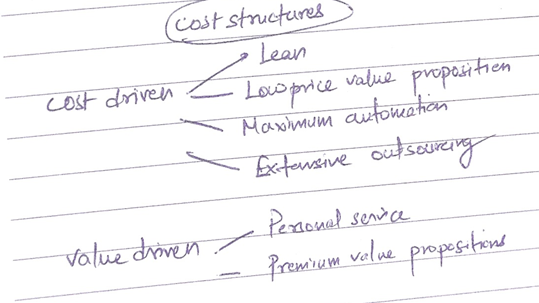 Cost structures
Lean
Cost driven
Low price value proposition
Maximum automation
Extensive outsourcing
Personal service
Value driven
Premium value propositions